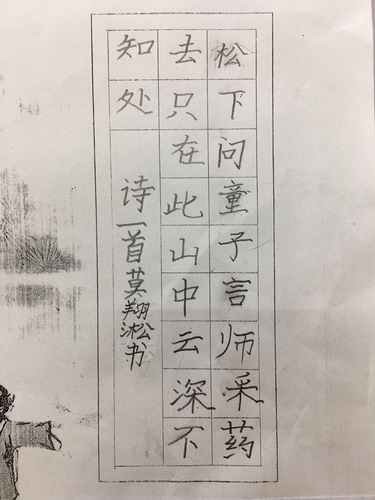 松下问童子言师采药
去只在此山中云深不
知处
诗一首莫翔淞书